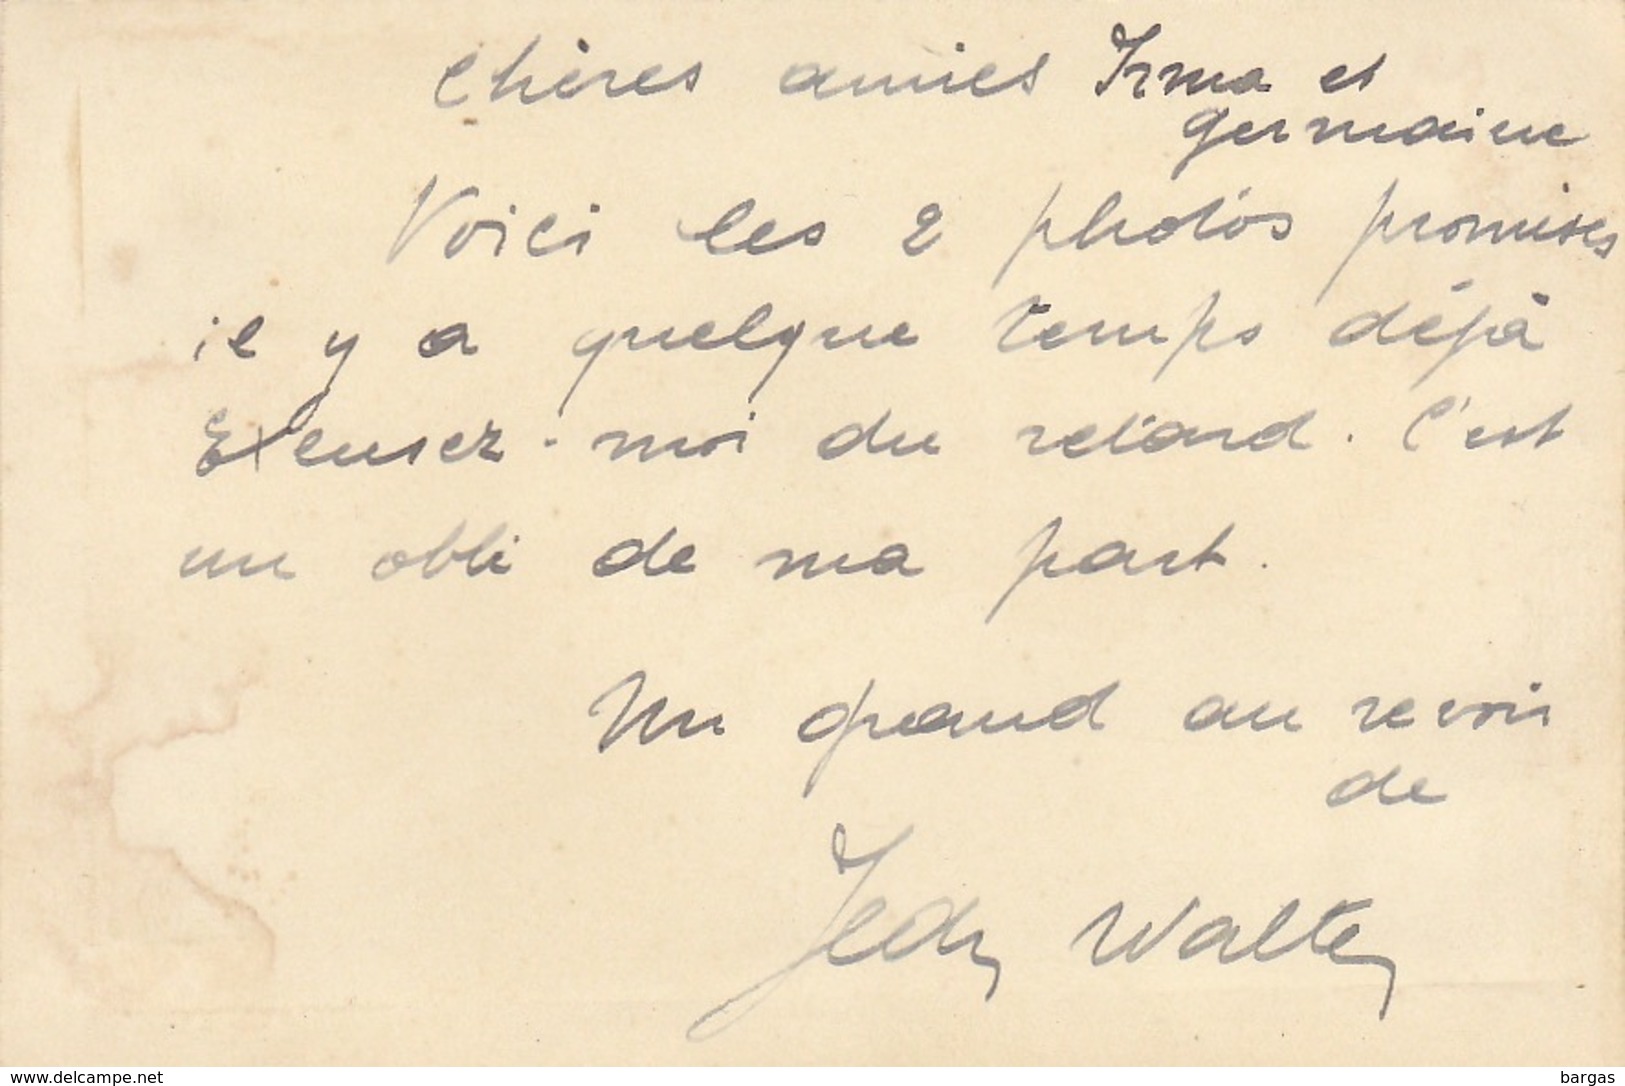 Chères amies Irma et
Germaine
Voici les 2 photos promises
il y a quelque temps déjà
Excusez-moi du retard. C'est
un obli de ma part.
Un grand au revoir
de
Jean Walter
www.delcampe.net
bargas